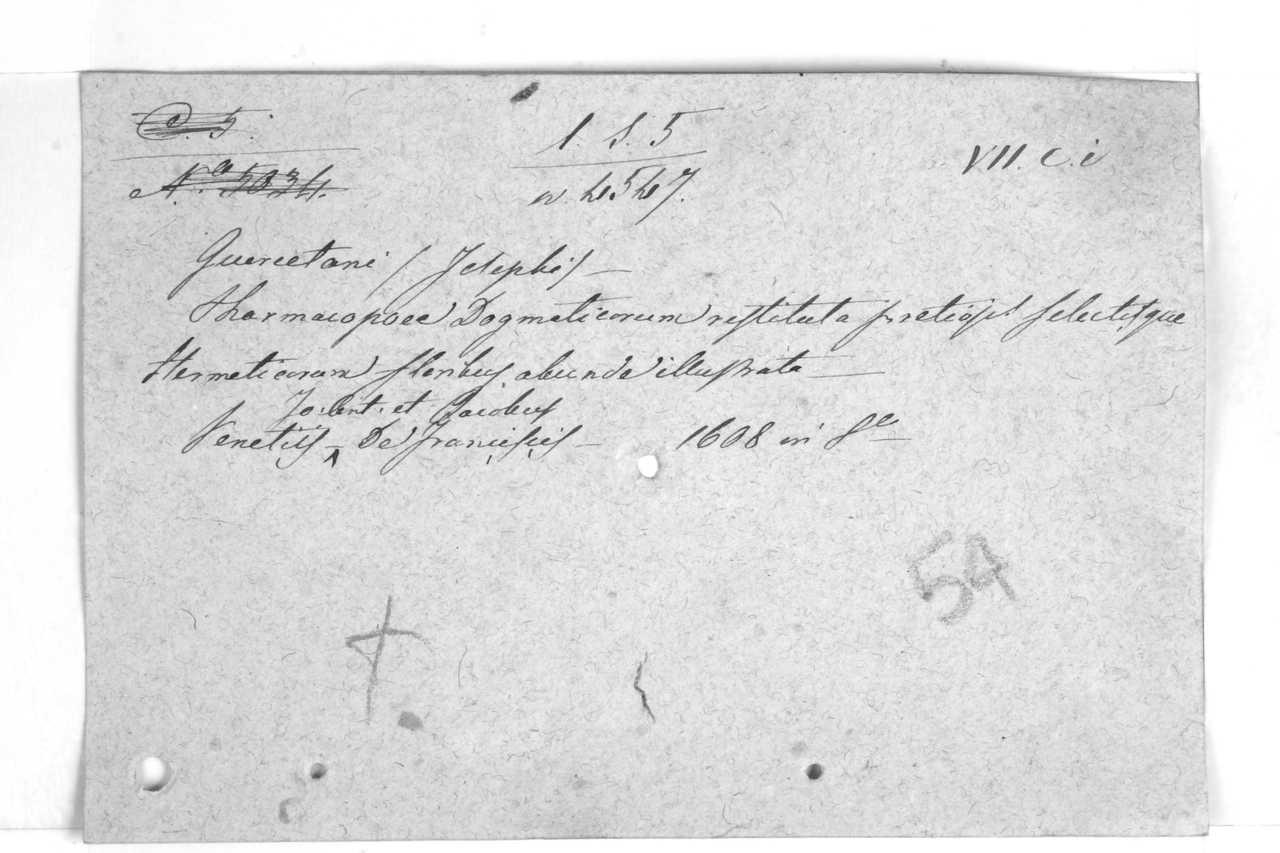 C. 5.
N.º 5034.
1. S. 5
n. 4547.
VII. c. i
Quercetani / Josephi /
Pharmacopoea Dogmaticorum restituta pretiosis selectisque
Hermeticorum floribus abunde illustrata
Jo: Ant. et Jacobus
Venetiis De Franciscis 1608 in 8º
54